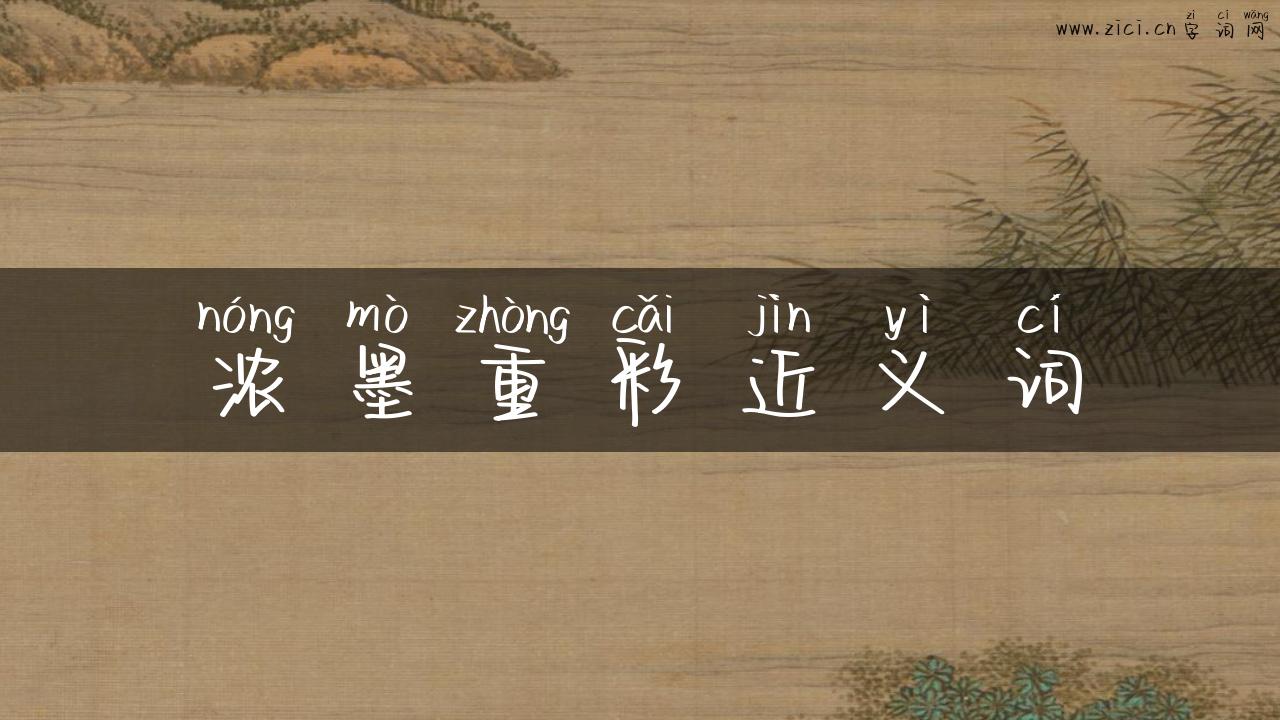 zì cí wǎng
www.zici.cn字词网
nóng mò zhòng cǎi jìn yì cí
浓墨重彩近义词